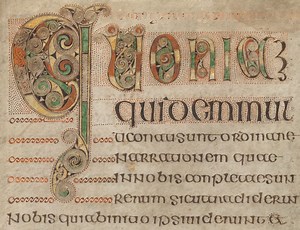 QUONIAM
QUIDEMMUL
TICONATISUNT ORDINARE
NARRATIONEM QUAE
INNOBIS COMPLETAESUN
RERUM SICUTTRADIDERUN
NOBIS QUIABINITIO IPSIUIDERUNT &